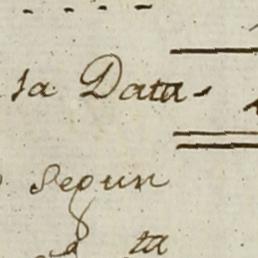 sa Data-
segun